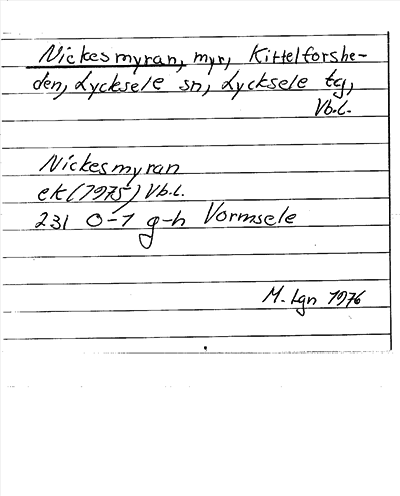 Nickesmyran, myr, Kittelforshe-
den, Lycksele sn, Lycksele tg,
Vb.l.
Nickesmyran
ek (1975) Vb.l.
231 0-1 g-h Vormsele
M. Lgn 1976